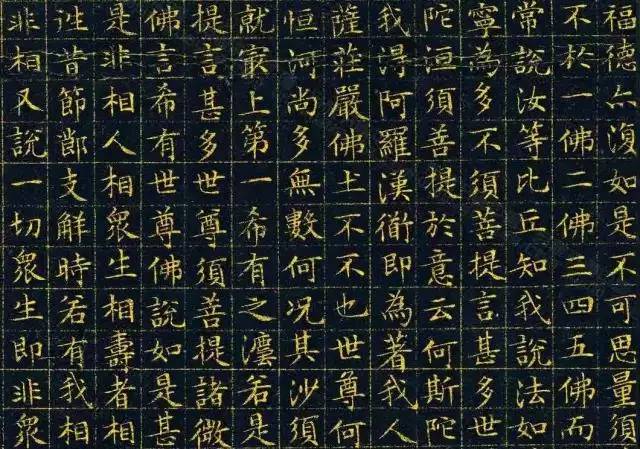 福德亦復如是不可思量須
不於一佛二佛三四五佛而
常說汝等比丘知我說法如
寧為多不須菩提言甚多世
陀洹須善提於意云何斯陀
我得阿羅漢衜即為著我人
薩莊嚴佛土不不也世尊何
恒河尚多無數何況其沙須
就冣上第一希有之灋若是
提言甚多世尊須善提諸微
佛言希有世尊佛說如是甚
是非相人相眾生相壽者相
往昔節節支解時若有我相
非相又說一切眾生即非眾